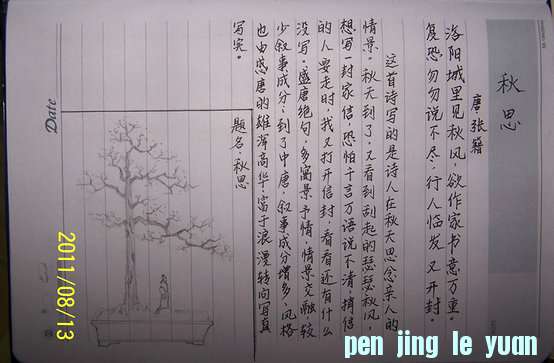 秋思
唐 张籍
洛阳城里见秋风,欲作家书意万重。
复恐匆匆说不尽,行人临发又开封。
这首诗写的是诗人在秋天思念亲人的
情景。秋天到了,又看到刮起的瑟瑟秋风,
想写一封家信,恐怕千言万语说不清,捎信
的人要走时,我又打开信封,看看还有什么
没写。盛唐绝句,多寓景于情,情景交融,较
少叙事成分;到了中唐,叙事成分增多,风格
也由盛唐的雄浑高华、富于浪漫转向写真
写实。
题名:秋思
Date
2011/08/13
pen jing le yuan